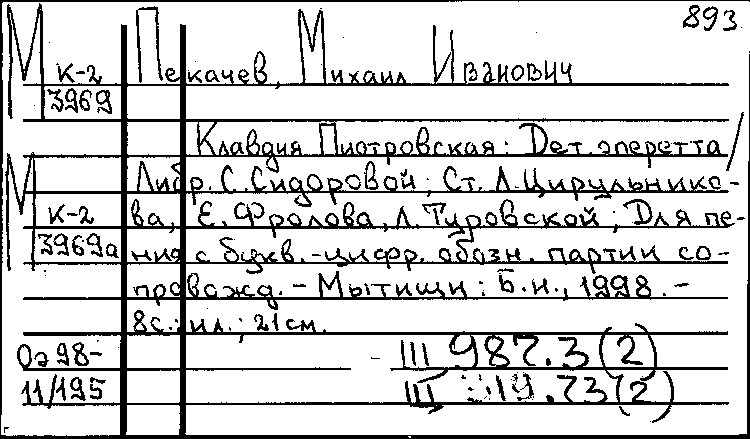 893
М к-2 Пекачев, Михаил Иванович
3969
Клавдия Пиотровская: Дет. оперетта /
М Либр. С. Сидоровой; Ст. Л. Цирульнико-
к-2 ва, Е. Фролова, Л. Туровской; Для пе-
3969а ния с букв.-цифр. обозн. партии со-
провожд. - Мытищи: Б.и., 1998. -
8с.: ил.; 21см.
Оэ 98- - III 987.3(2)
11/195 Щ .73(2)